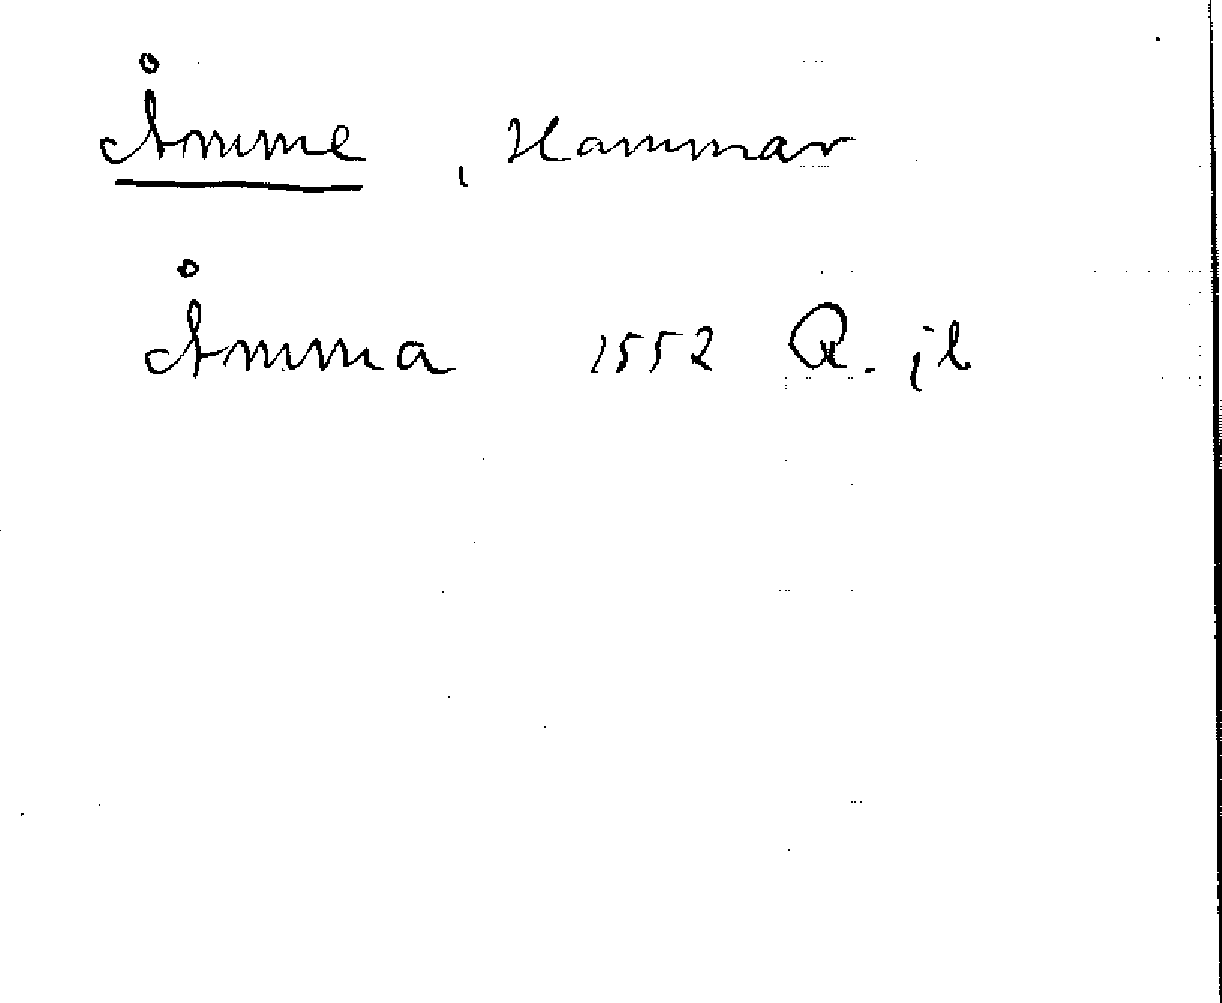 Åmme, Hammar
Åmma 1552 R. jb